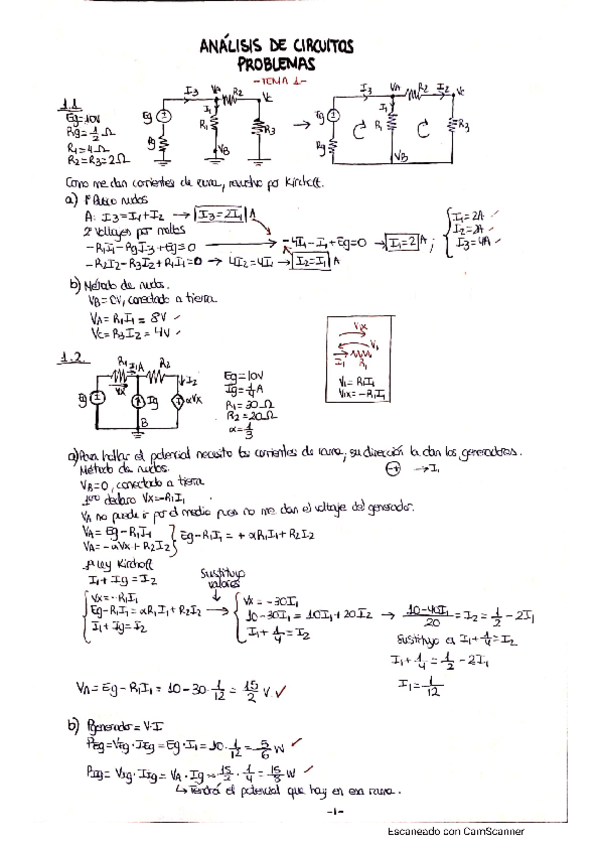 ANÁLISIS DE CIRCUITOS
PROBLEMAS
-TEMA 1-
1.1
Eg=10V
Rg=1/2 Ω
R1=4Ω
R2=R3=2Ω
I3 VA R2 Vc
Eg I1 R1 R3
Rg VB
I3 VA R2 I2 Vc
Eg I1 R1 R3
Rg VB
Como me dan corrientes de rama, resuelvo por Kirchoff.
a) 1º Busco nudos
A: I3=I1+I2 → I3=2I1 A
2º Voltajes por mallas
-R1I1-RgI3+Eg=0 → -4I1-I1+Eg=0 → I1=2 A ;
-R2I2-R3I2+R1I1=0 → 4I2=4I1 → I2=I1 A
I1=2A ✓
I2=2A ✓
I3=4A ✓
b) Método de nudos.
VB=0V, conectado a tierra
VA=R1I1=8V ✓
Vc=R3I2=4V ✓
Vix
V1
I1 R1
V1=R1I1
Vix=-R1I1
1.2.
R1 I1 A R2
Vx I2
Eg Ig αVx
B
Eg=10V
Ig=1/4 A
R1=30Ω
R2=20Ω
α=1/3
a) Para hallar el potencial necesito las corrientes de rama, su dirección la dan los generadores.
→I1
Método de nudos.
VB=0, conectado a tierra
declaro Vx=-R1I1
VA no puede ir por el medio pues no me dan el voltaje del generador.
VA=Eg-R1I1
VA=-αVx+R2I2
Eg-R1I1=+αR1I1+R2I2
Ley Kirchoff
I1+Ig=I2
Sustituyo valores
Vx=-R1I1
Eg-R1I1=αR1I1+R2I2 →
I1+Ig=I2
Vx=-30I1
10-30I1=10I1+20I2 → 10-40I1/20=I2=1/2-2I1
I1+1/4=I2
Sustituyo en I1+1/4=I2
I1+1/4=1/2-2I1
I1=1/12
VA=Eg-R1I1=10-30·1/12=15/2 V ✓
b) Pgenerador=V·I
PEg=VEg·IEg=Eg·I1=10·1/12=5/6 W ✓
PIg=VIg·IIg=VA·Ig=15/2·1/4=15/8 W ✓
↳Tendrá el potencial que hay en esa rama.
-1-
Escaneado con CamScanner